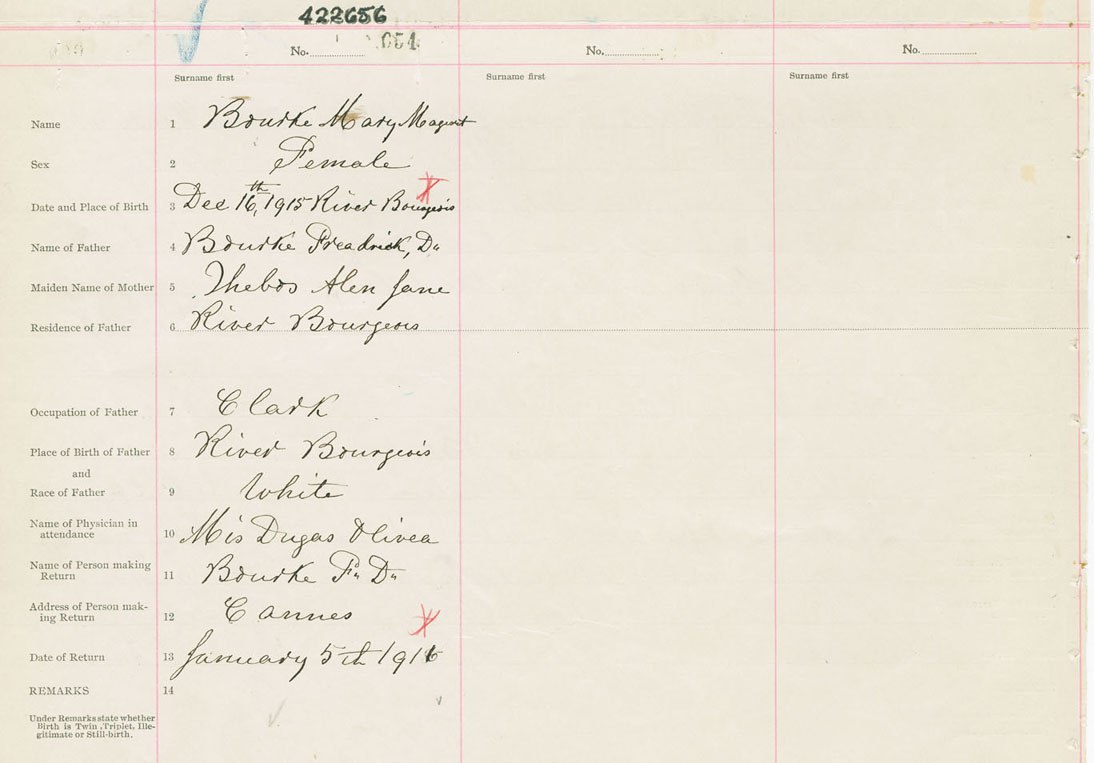 422656
No. 654
No.
No.
Surname first
Surname first
Surname first
Name 1 Bourke Mary Magaret
Sex 2 Female
Date and Place of Birth 3 Dec 16th, 1915 River Bourgeois
Name of Father 4 Bourke Freadrick, D.
Maiden Name of Mother 5 Thebos Alen Jane
Residence of Father 6 River Bourgeois
Occupation of Father 7 Clark
Place of Birth of Father 8 River Bourgeois
and
Race of Father 9 White
Name of Physician in
attendance 10 Mis Dugas Olivea
Name of Person making
Return 11 Bourke F. D.
Address of Person mak-
ing Return 12 Cannes
Date of Return 13 January 5th 1916
REMARKS 14
Under Remarks state whether
Birth is Twin, Triplet, Ille-
gitimate or Still-birth.